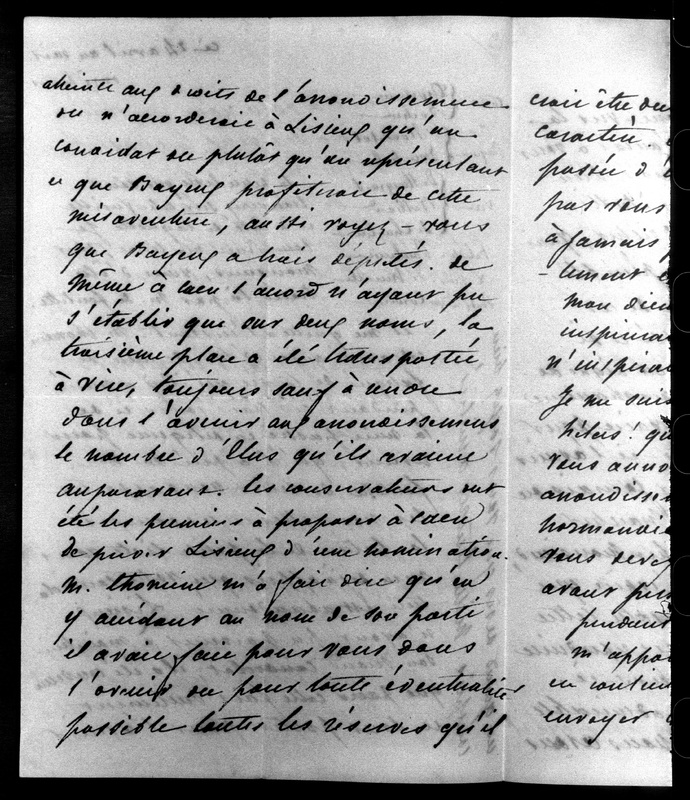 atteinte aux droits de l'arrondissement
on n'accorderait à Lisieux qu'un
candidat ou plutôt qu'un représentant
et que Bayeux profiterait de cette
mésaventure, aussi voyez-vous
que Bayeux a trois députés. de
même à Caen l'accord n'ayant pu
s'établir que sur deux noms, la
troisième place a été transportée
à Vire, toujours sauf à rendre
dans l'avenir aux arrondissements
le nombre d'Élus qu'ils avaient
auparavant. les conservateurs ont
été les premiers à proposer à Caen
de priver Lisieux d'une nomination.
M. Thomine m'a fait dire qu'en
y accédant au nom de son parti
il avait fait pour vous dans
l'avenir ou pour toute éventualité
possible toutes les réserves qu'il
crois être
caractère
passée d'
pas vous
à jamais
-lement
mon dieu
inspira
n'inspira
Je me suis
hélas! qu
vous anno
arrondisse
normandie
vous
avant
pendant
m'appor
en
envoyer